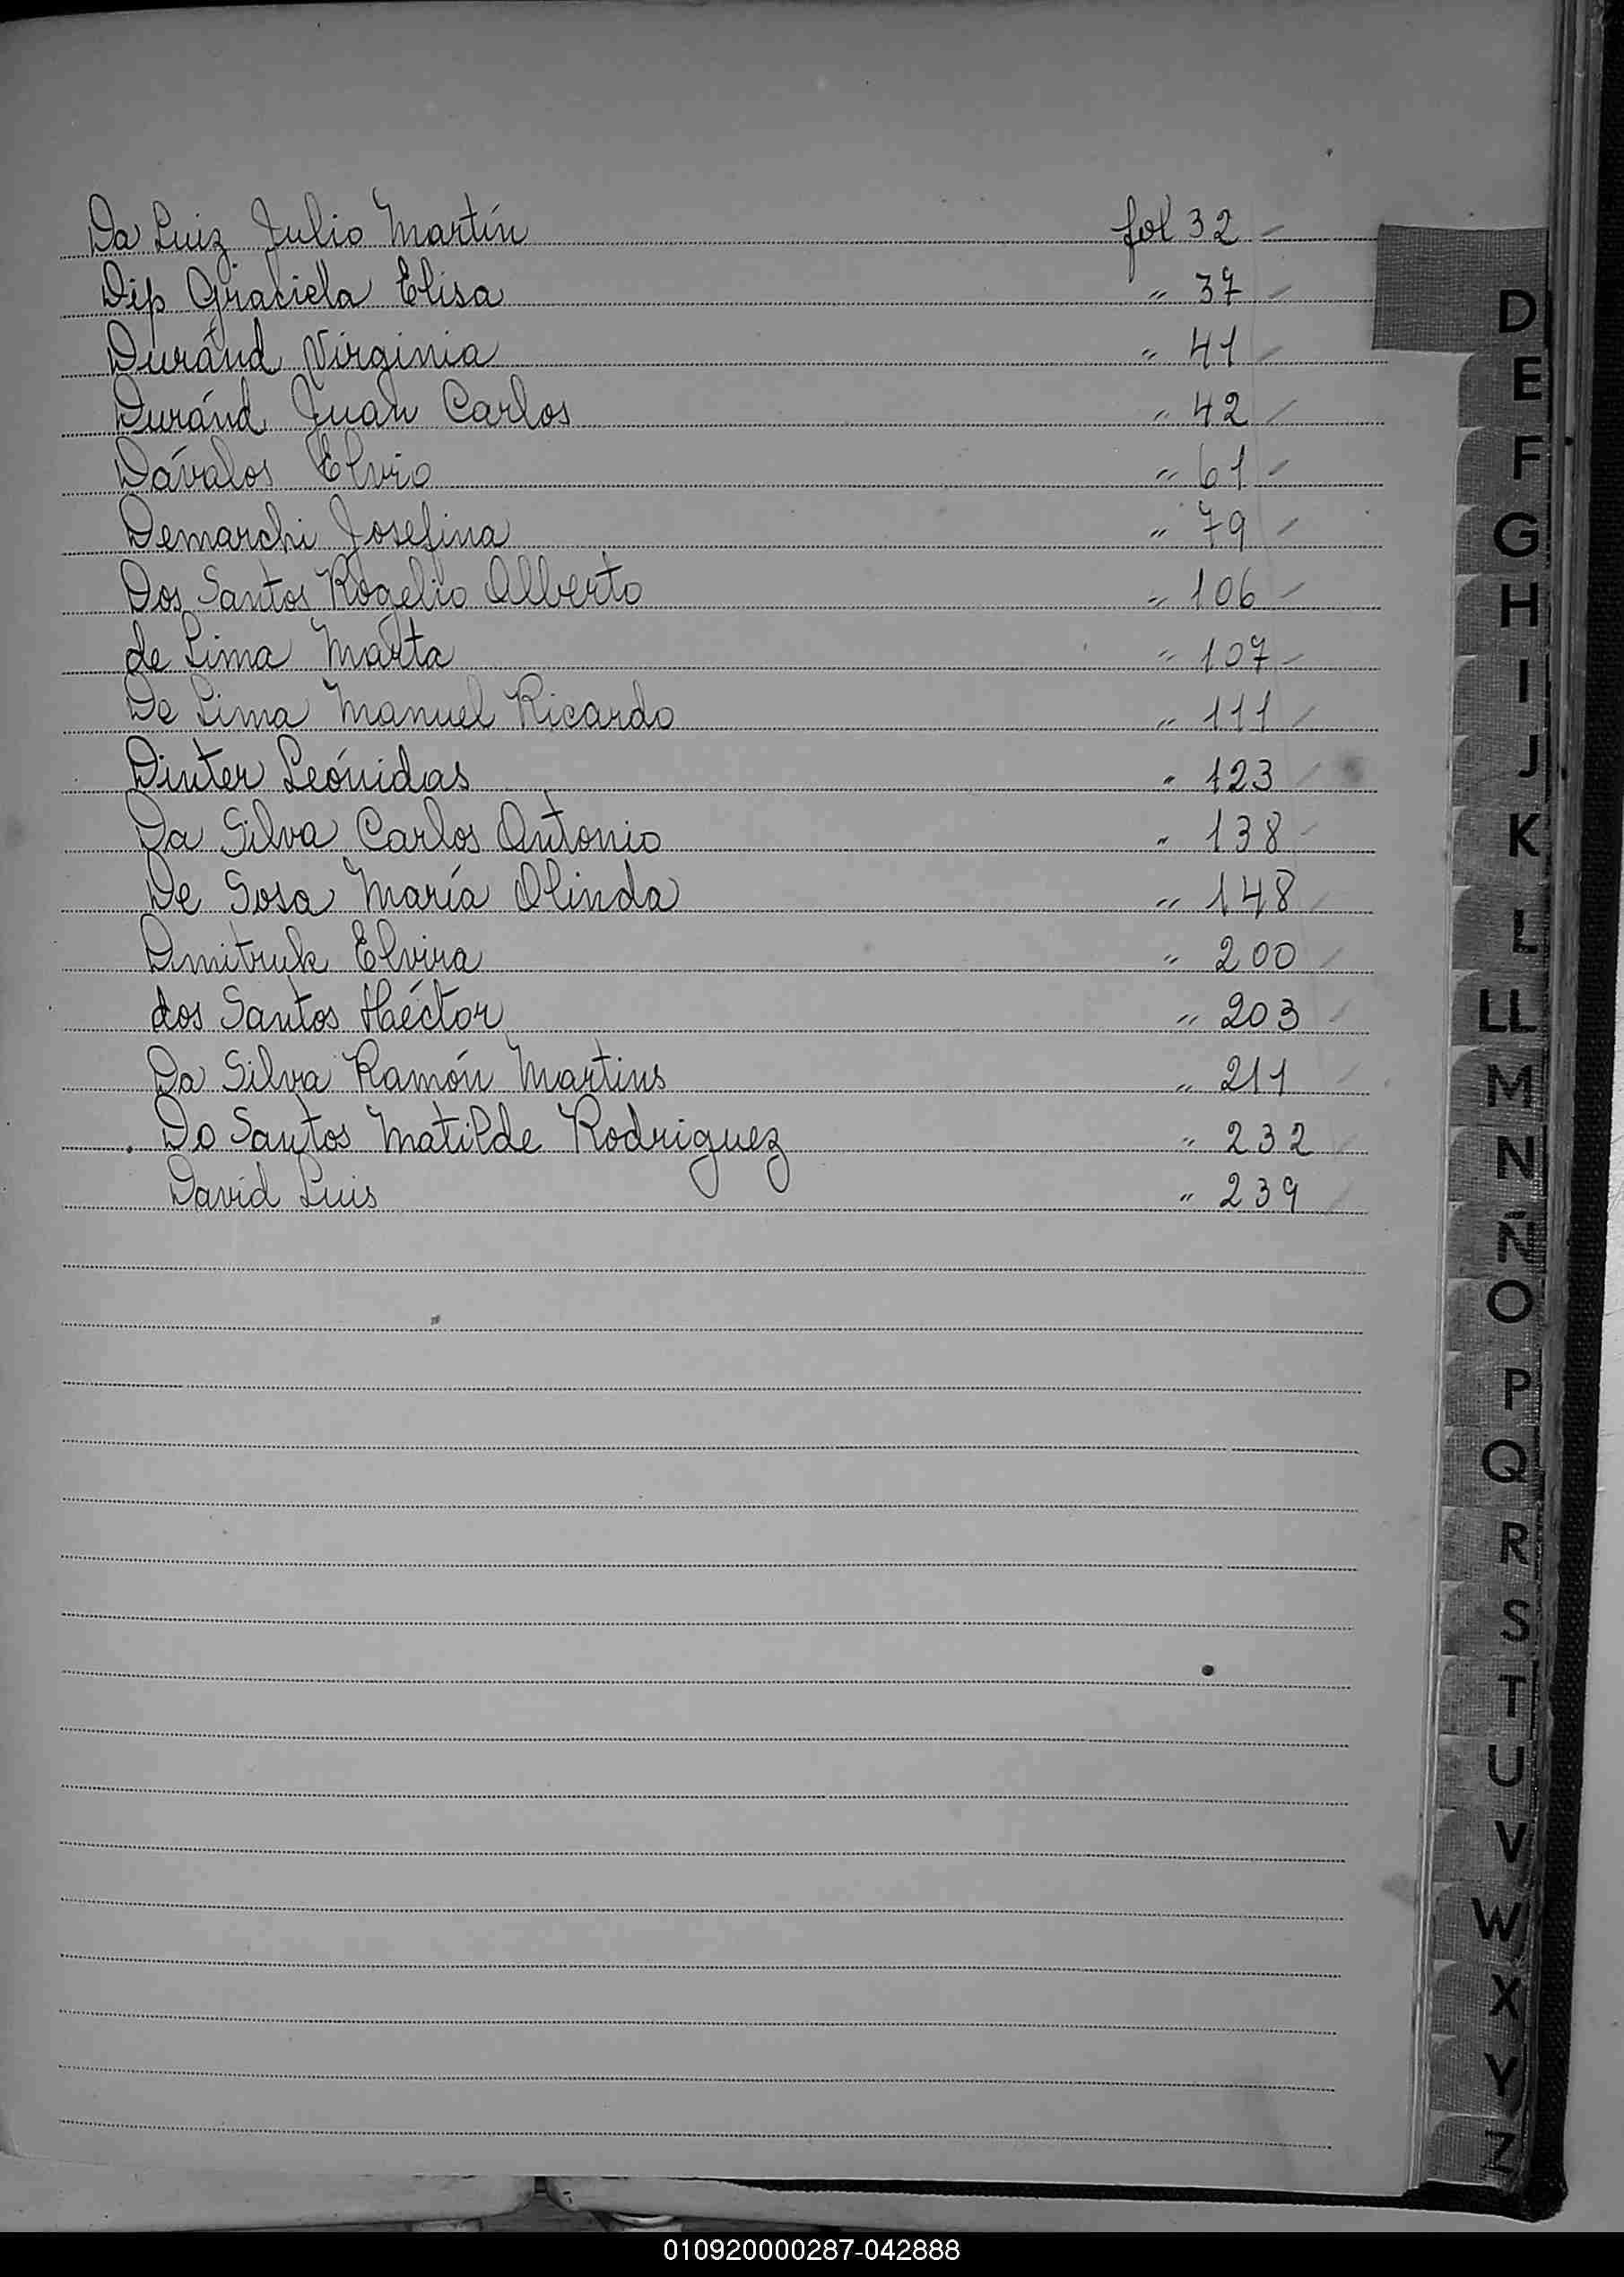 Da Luiz Julio Martín fol 32
Dip Graciela Elisa " 37
Duránd Virginia " 41
Duránd Juan Carlos " 42
Dávalos Elvio " 61
Demarchi Josefina " 79
Dos Santos Rogelio Alberto " 106
de Lima Marta " 107
De Lima Manuel Ricardo " 111
Dinter Leónidas " 123
Da Silva Carlos Antonio " 138
De Sosa María Olinda " 148
Dmitruk Elvira " 200
dos Santos Héctor " 203
Da Silva Ramón Martins " 211
Do Santos Matilde Rodriguez " 232
David Luis " 239
D
E
F
G
H
I
J
K
L
LL
M
N
Ñ
O
P
Q
R
S
T
U
V
W
X
Y
Z
010920000287-042888